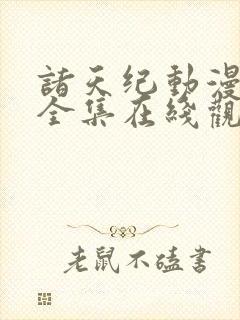 諸天纪動漫
全集在綫觀
老鼠不磕書